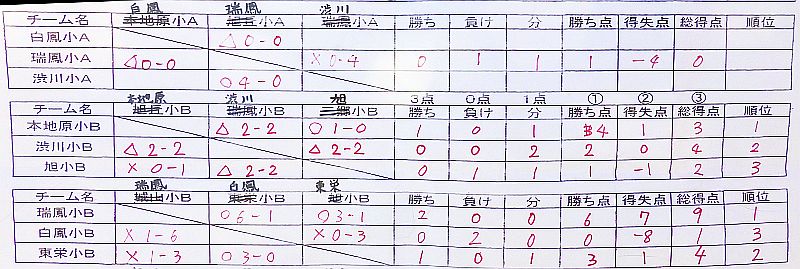 白鳳 瑞鳳 渋川
チーム名 本地原小A 旭丘小A 瑞鳳小A 勝ち 負け 分 勝ち点 得失点 総得点 順位
白鳳小A △0-0
瑞鳳小A △0-0 ×0-4 0 1 1 1 -4 0
渋川小A ○4-0
本地原 渋川 旭 3点 0点 1点 ① ② ③
チーム名 旭丘小B 瑞鳳小B 三郷小B 勝ち 負け 分 勝ち点 得失点 総得点 順位
本地原小B △2-2 ○1-0 1 0 1 4 1 3 1
渋川小B △2-2 △2-2 0 0 2 2 0 4 2
旭小B ×0-1 △2-2 0 1 1 1 -1 2 3
瑞鳳 白鳳 東栄
チーム名 城山小B 東栄小B 旭小B 勝ち 負け 分 勝ち点 得失点 総得点 順位
瑞鳳小B ○6-1 ○3-1 2 0 0 6 7 9 1
白鳳小B ×1-6 ×0-3 0 2 0 0 -8 1 3
東栄小B ×1-3 ○3-0 1 0 1 3 1 4 2